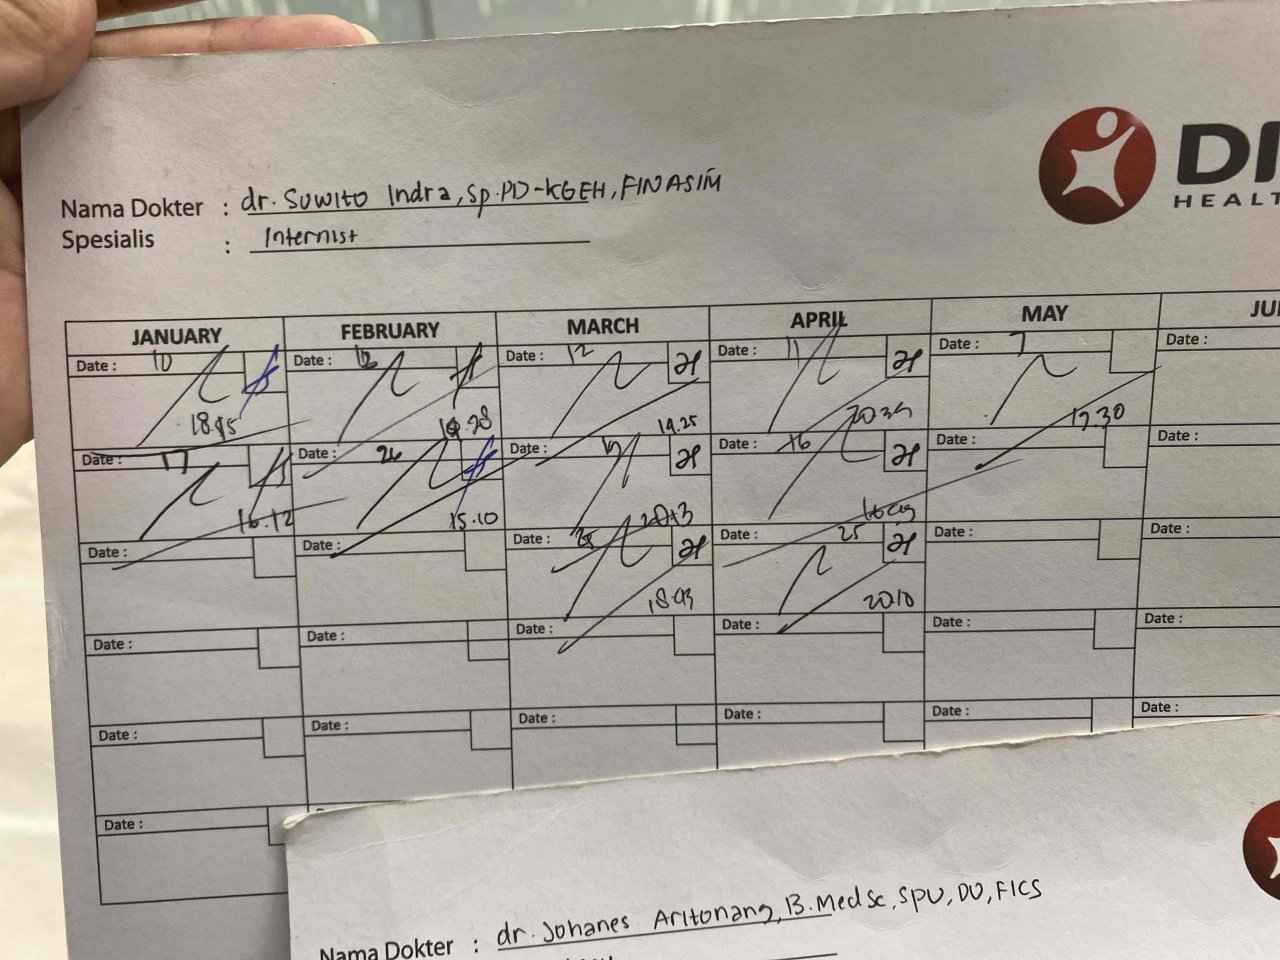 DI
HEALT
Nama Dokter : dr. Suwito Indra, Sp.PD-KGEH, FINASIM
Spesialis : Internist
JANUARY FEBRUARY MARCH APRIL MAY JU
Date : 10 Date : 12 Date : 12 Date : 11 Date : 7 Date :
18.45 19.25 17.30
Date : 17 Date : 26 Date : Date : 16 Date : Date :
16.12 15.10
Date : Date : Date : Date : 25 Date : Date :
20.10
Date : Date : Date : Date : Date : Date :
Date : Date : Date : Date : Date : Date :
Date :
Nama Dokter : dr. Johanes Aritonang, B.MedSc, SpU, DU, FICS